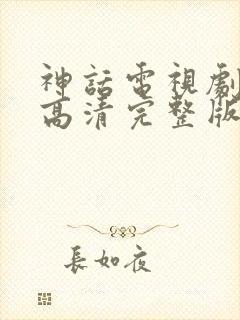 神話電視劇
高清完整版
長如夜